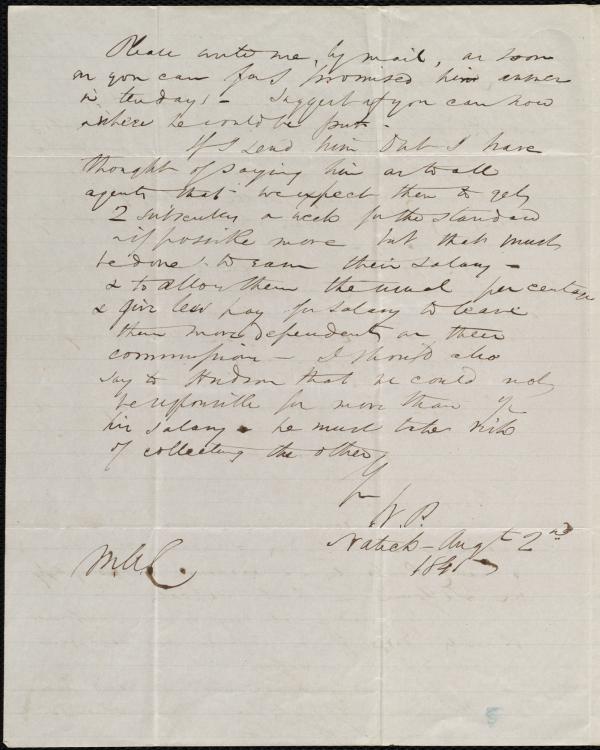 Please write me, by mail, as soon
as you can for I promised him answer
in ten days - Suggest if you can now
where he could be put -
If I send him out I have
thought of saying him as to all
agents that we expect them to get
2 subscribers a week for the standard
& if possible more but that must
be done to earn their salary -
& to allow them the usual percentage
& give less pay for salary to leave
them more dependent on their
commission - I should also
say to Hudson that we could not
be responsible for more than
his salary - he must take risk
of collecting the other
Yr
W.P.
Natick - Augt 2nd
184
M.W.C.